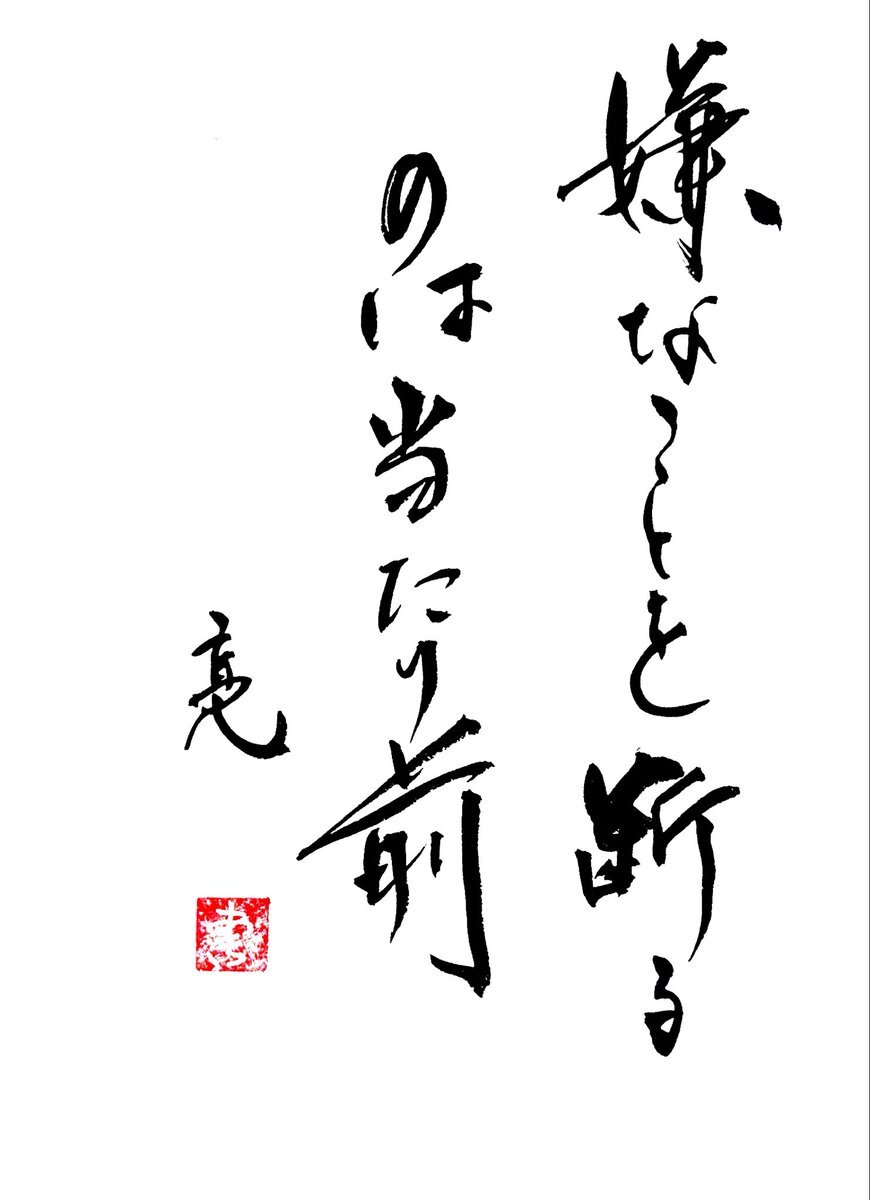 嫌なことを断る
のは当たり前
亮